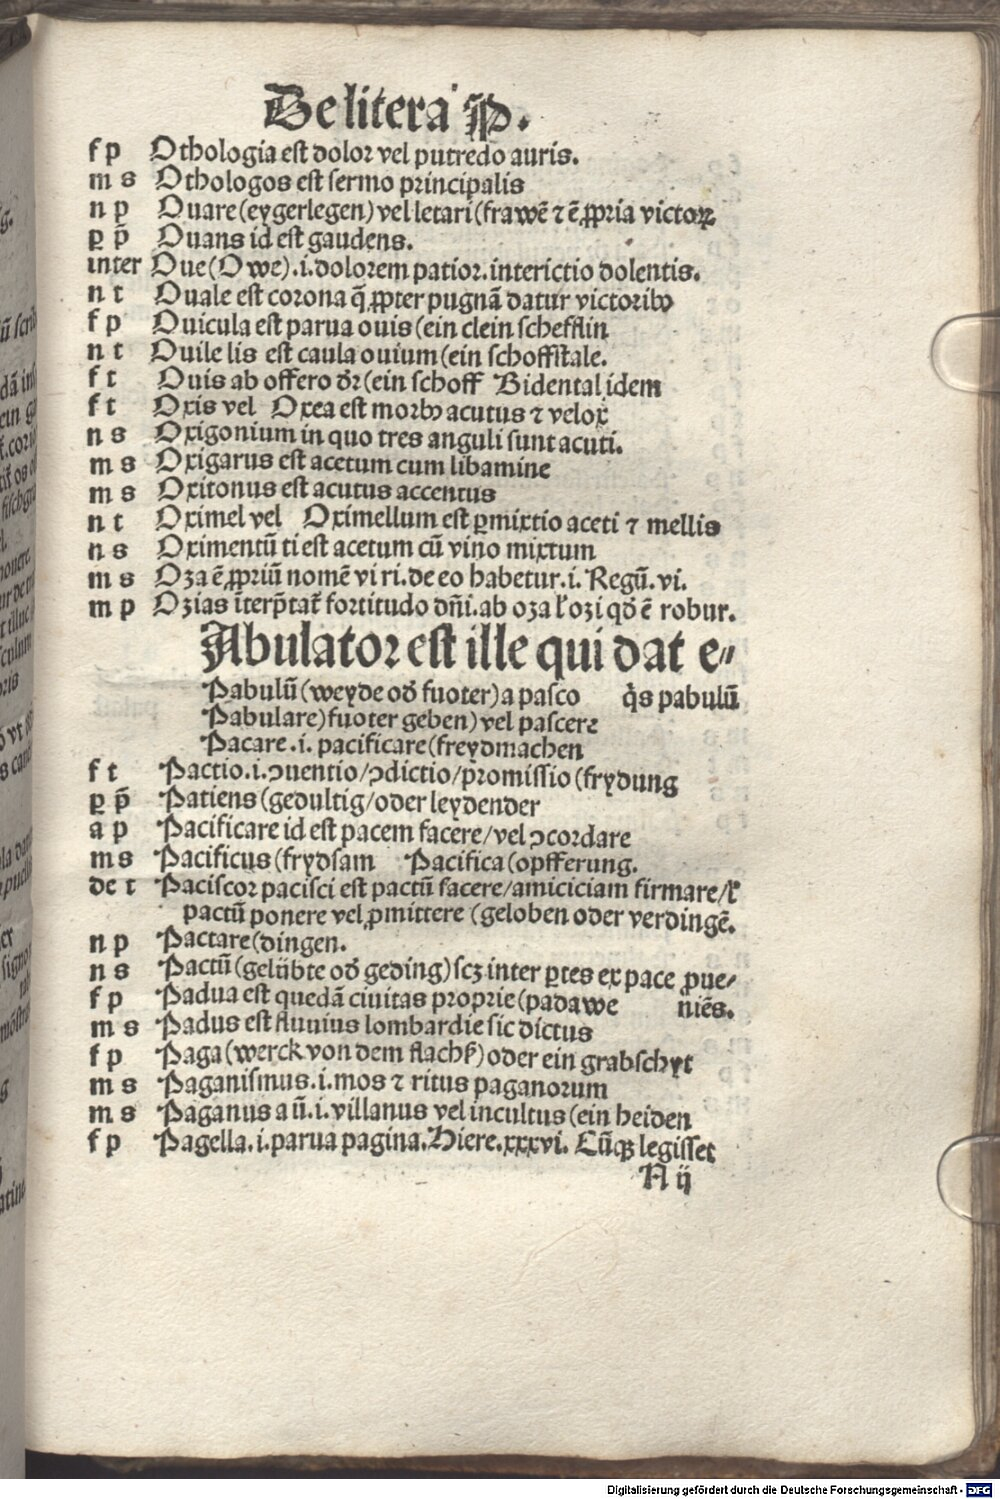 De litera P.
f p Othologia est dolor vel putredo auris.
m s Othologos est sermo principalis
n p Ouare (eygerlegen) vel letari (frawē ⁊ ē ꝓpria victoꝝ
ꝑ p̄ Ouans id est gaudens.
inter Oue (O we) .i. dolorem patior. interictio dolentis.
n t Ouale est corona q̄ ꝓpter pugnā datur victoribꝰ
f p Ouicula est parua ouis (ein clein schefflin
n t Ouile lis est caula ouium (ein schoffstale.
f t Ouis ab offero dr̄ (ein schoff Bidental idem
f t Oxis vel Oxea est morbꝰ acutus ⁊ velox
n s Oxigonium in quo tres anguli sunt acuti.
m s Oxigarus est acetum cum libamine
m s Oxitonus est acutus accentus
n t Oximel vel Oximellum est ꝑmixtio aceti ⁊ mellis
n s Oximentū ti est acetum cū vino mixtum
m s Oza ē ꝓpriū nomē viri. de eo habetur .i. Regū. vi.
m p Ozias īterp̄tat̄ fortitudo dn̄i. ab oza ł ozi qđ ē robur.
PAbulator est ille qui dat e⸗
Pabulū (weyde ođ fuoter) a pasco q̇s pabulū
Pabulare) fuoter geben) vel pascere
Pacare .i. pacificare (freydmachen
f t Pactio .i. ꝯuentio/ꝯdictio/promissio (frydung
ꝑ p̄ Patiens (gedultig/oder leydender
a p Pacificare id est pacem facere/vel ꝯcordare
m s Pacificus (frydsam Pacifica (opfferung.
de t Paciscor pacisci est pactū facere/amiciciam firmare/ł
pactū ponere vel ꝓmittere (geloben oder verdingē.
n p Pactare (dingen.
n s Pactū (gelübte ođ geding) scꝫ inter ꝑtes ex pace ꝓue⸗
f p Padua est quedā ciuitas proprie (padawe niēs.
m s Padus est fluuius lombardie sic dictus
f p Paga (werck von dem flachß) oder ein grabschyt
m s Paganismus .i. mos ⁊ ritus paganorum
m s Paganus a ū .i. villanus vel incultus (ein heiden
f p Pagella .i. parua pagina. Hiere. xxxvi. Cūqꝫ legisset
A ij
Digitalisierung gefördert durch die Deutsche Forschungsgemeinschaft - DFG